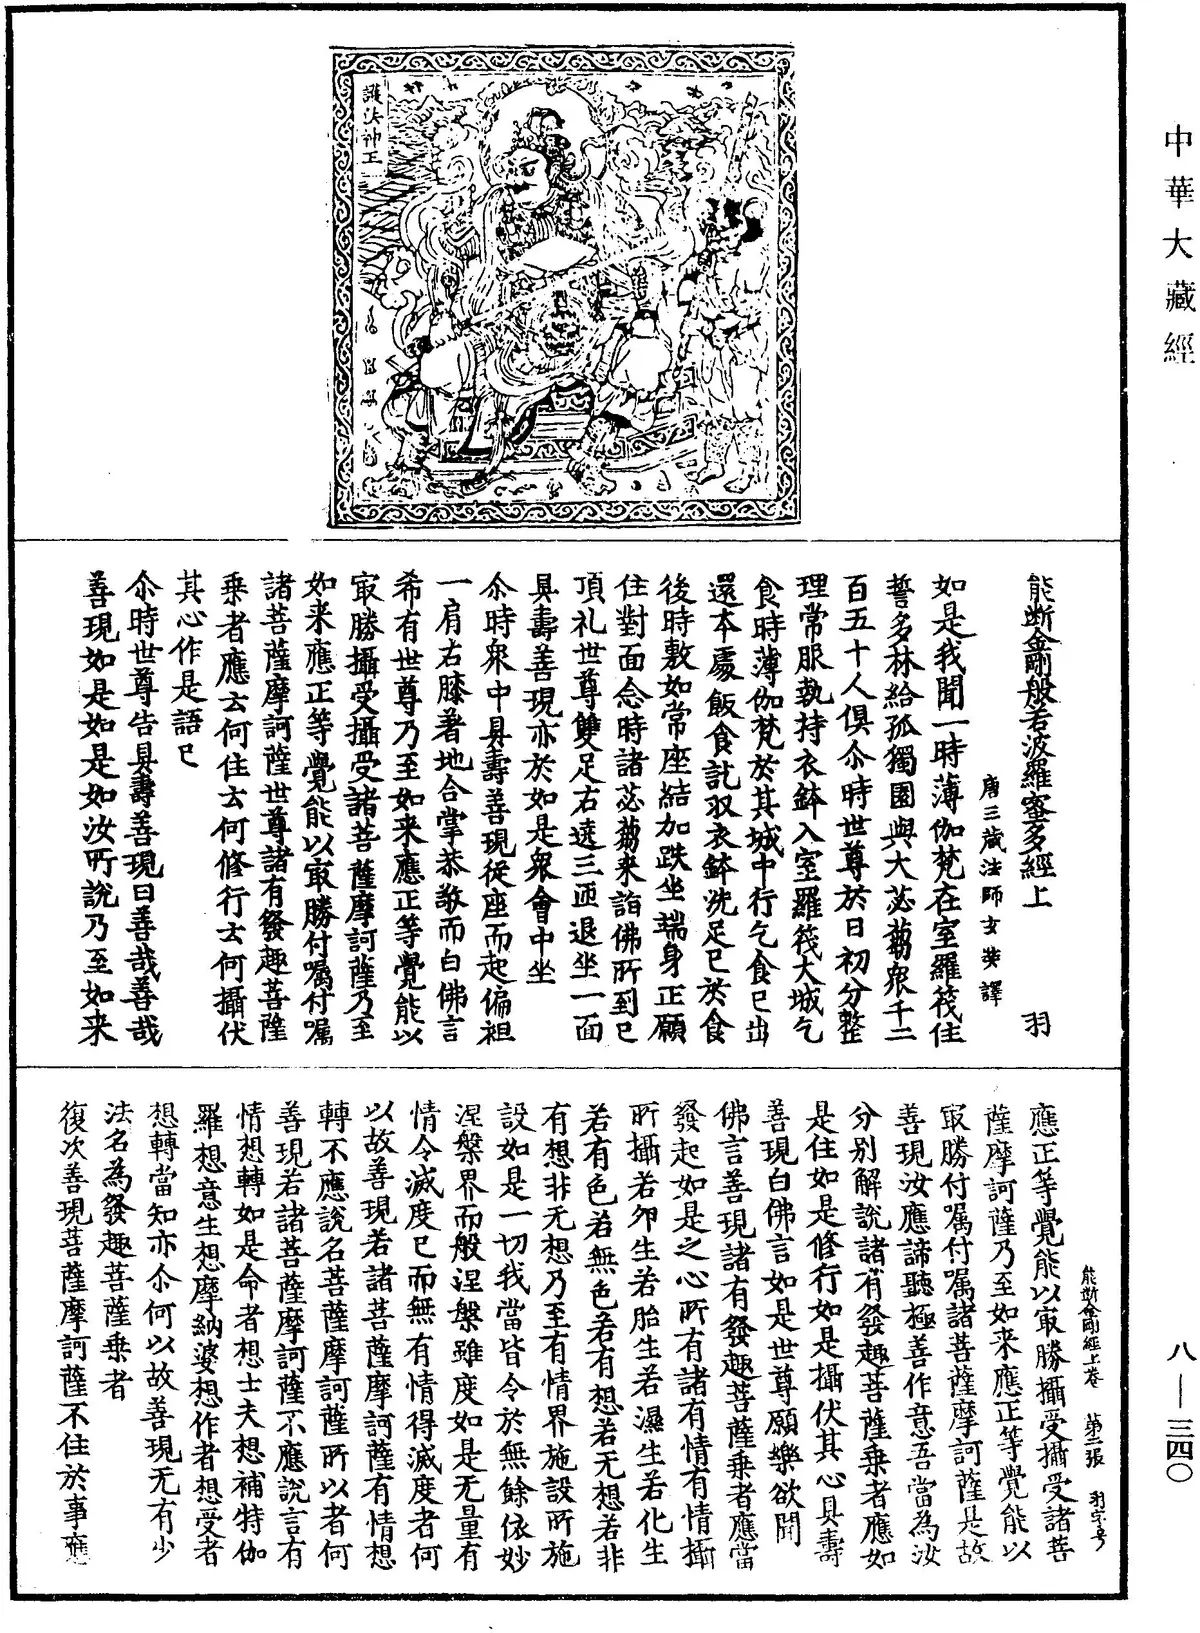 中華大藏經
八—三四〇
護法神王
能斷金剛般若波羅蜜多經上 羽
唐三藏法師玄奘譯
如是我聞一時薄伽梵在室羅筏住
誓多林給孤獨園與大苾芻衆千二
百五十人俱尒時世尊於日初分整
理常服執持衣鉢入室羅筏大城乞
食時薄伽梵於其城中行乞食已出
還本處飯食訖収衣鉢洗足已於食
後時敷如常座結加趺坐端身正願
住對面念時諸苾芻来詣佛所到已
頂礼世尊雙足右遶三匝退坐一面
具壽善現亦於如是衆會中坐
尒時衆中具壽善現從座而起偏袒
一肩右膝著地合掌恭敬而白佛言
希有世尊乃至如来應正等覺能以
㝡勝攝受攝受諸菩薩摩訶薩乃至
如来應正等覺能以㝡勝付嘱付嘱
諸菩薩摩訶薩世尊諸有發趣菩薩
乗者應云何住云何修行云何攝伏
其心作是語已
尒時世尊告具壽善現曰善哉善哉
善現如是如是如汝所說乃至如来
能斷金剛經上卷 第二張 羽字号
應正等覺能以㝡勝攝受攝受諸菩
薩摩訶薩乃至如来應正等覺能以
㝡勝付嘱付嘱諸菩薩摩訶薩是故
善現汝應諦聽極善作意吾當為汝
分别解說諸有發趣菩薩乗者應如
是住如是修行如是攝伏其心具壽
善現白佛言如是世尊願樂欲聞
佛言善現諸有發趣菩薩乗者應當
發起如是之心所有諸有情有情攝
所攝若卵生若胎生若濕生若化生
若有色若無色若有想若无想若非
有想非无想乃至有情界施設所施
設如是一切我當皆令於無餘依妙
涅槃界而般涅槃雖度如是无量有
情令滅度已而無有情得滅度者何
以故善現若諸菩薩摩訶薩有情想
轉不應說名菩薩摩訶薩所以者何
善現若諸菩薩摩訶薩不應說言有
情想轉如是命者想士夫想補特伽
羅想意生想摩納婆想作者想受者
想轉當知亦尒何以故善現无有少
法名為發趣菩薩乗者
復次善現菩薩摩訶薩不住於事應